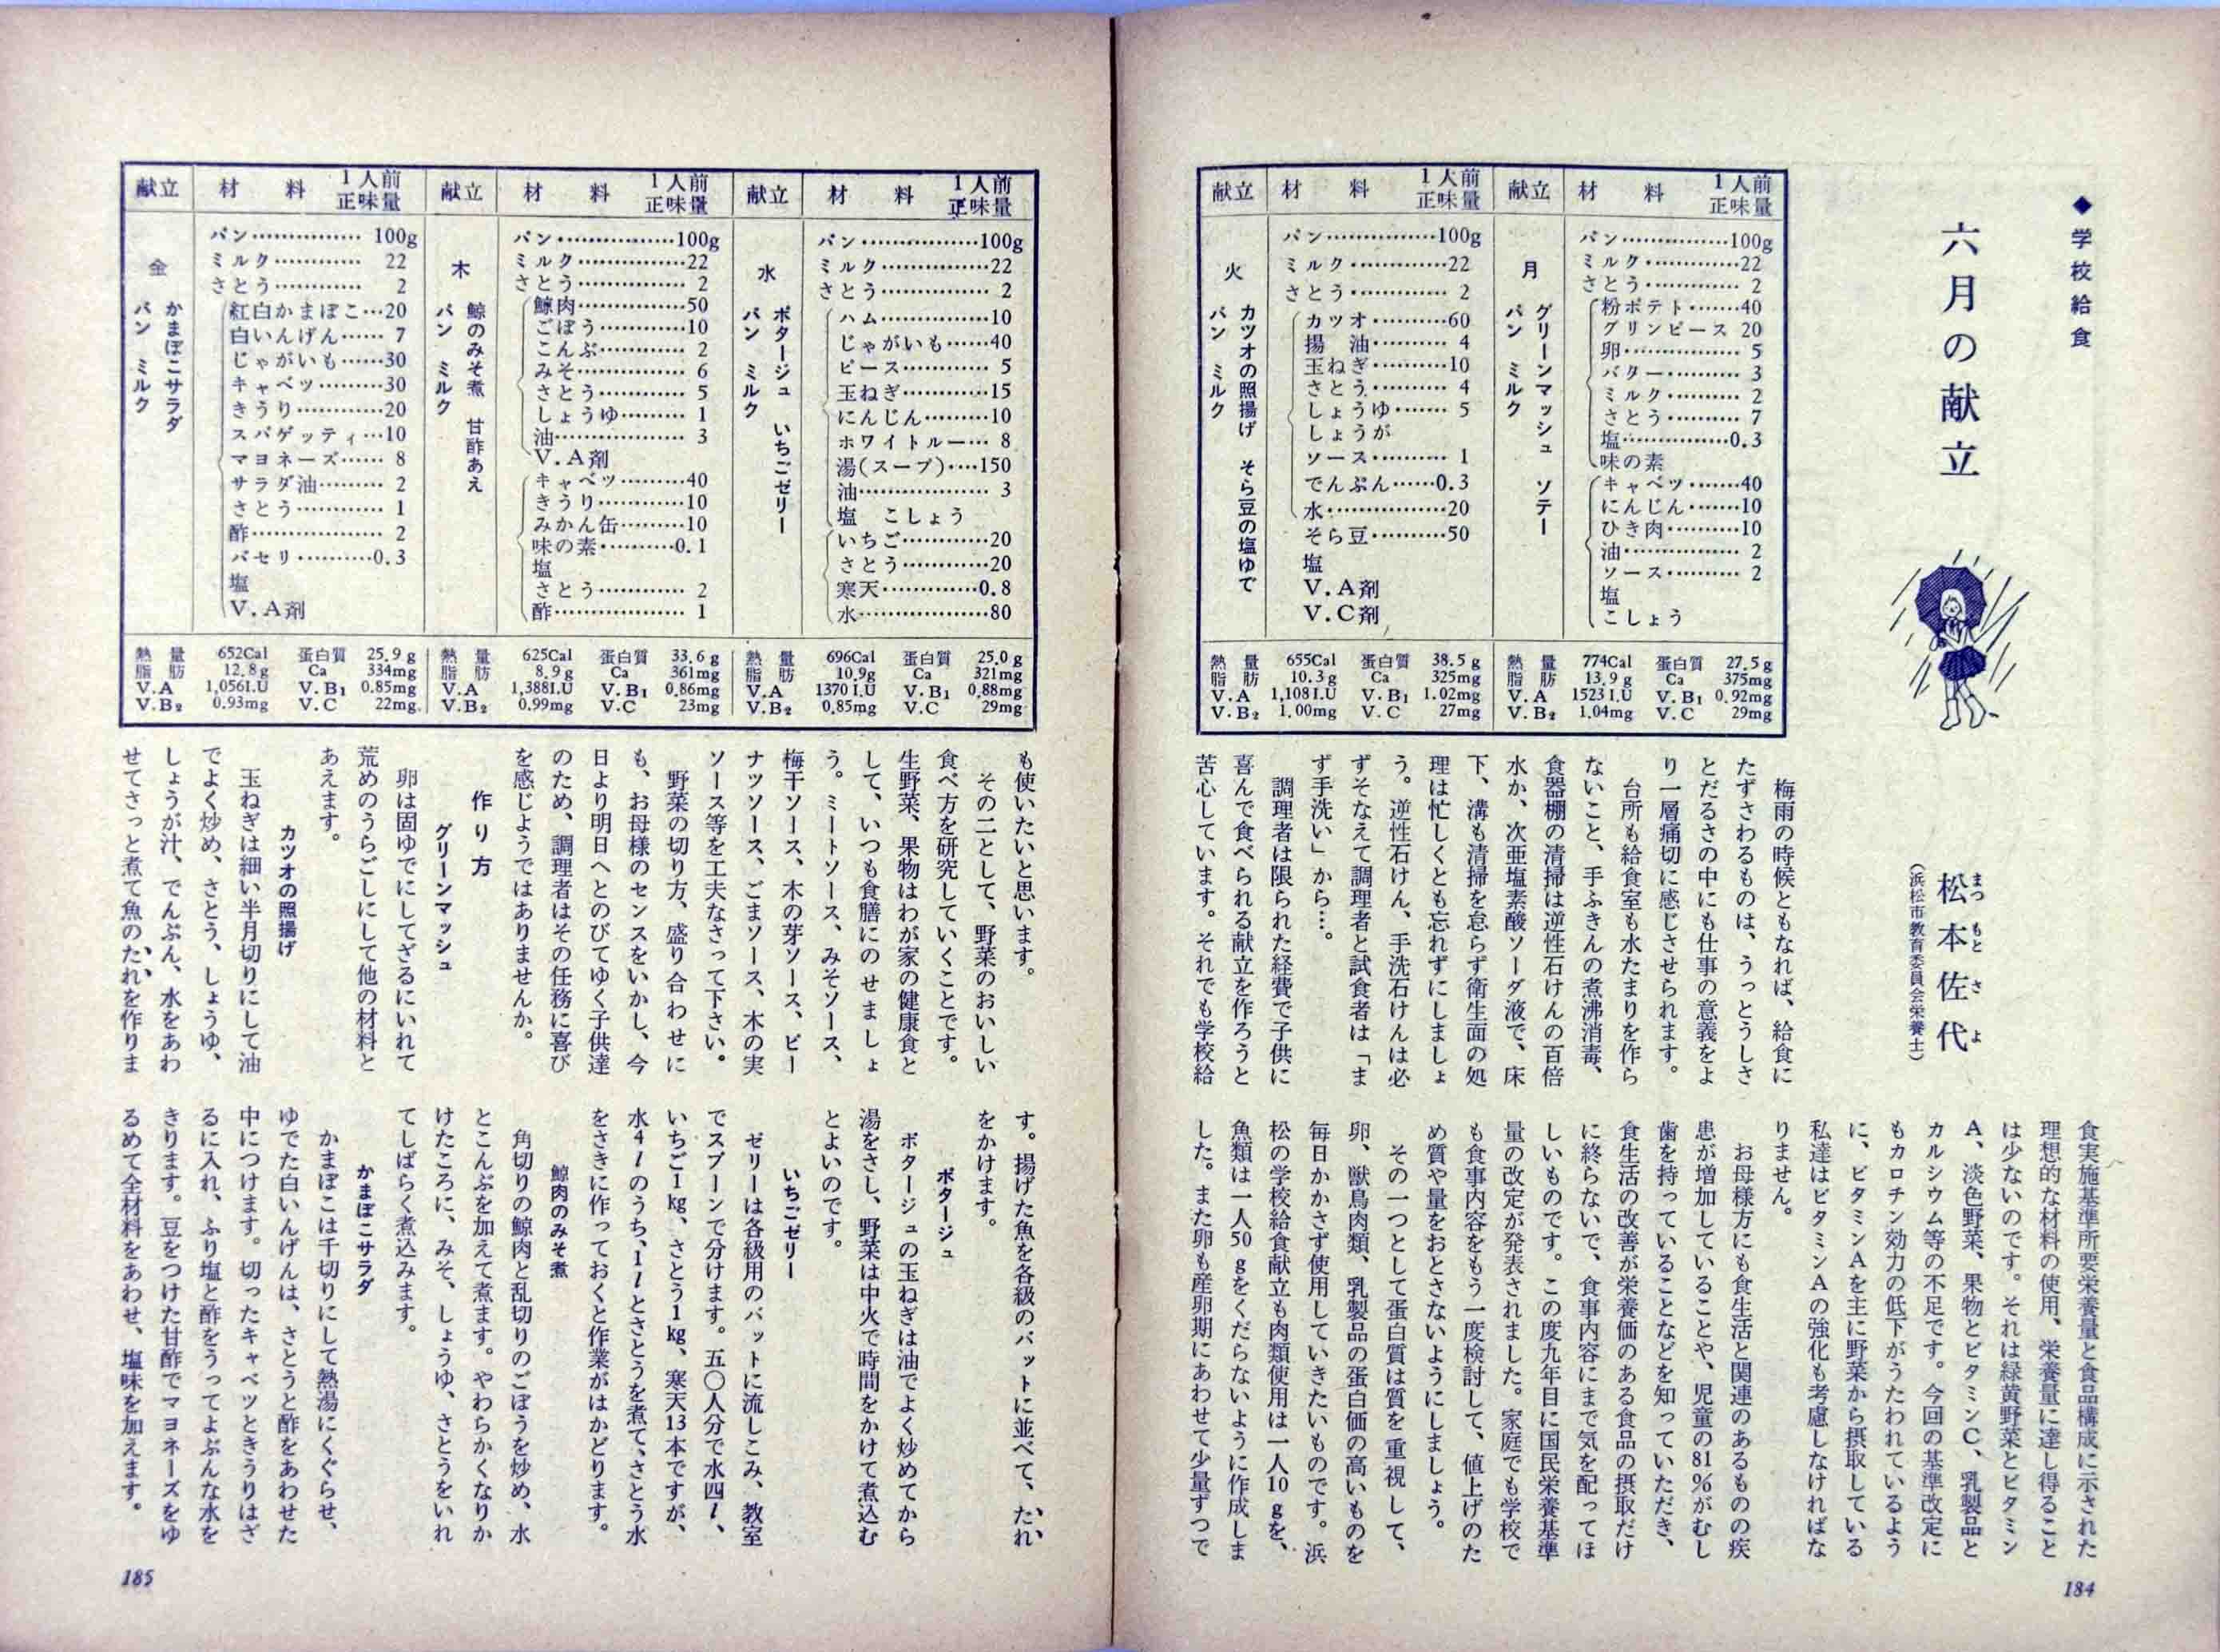 ◆学校給食
六月の献立
松本佐代
まつもとさよ
（浜松市教育委員会栄養士）
献立 材料 1人前正味量
月 グリーンマッシュ ソテー
パン ミルク
パン………100g
ミルク………22
さとう………2
粉ポテト………40
グリンピース 20
卵………5
バター………3
ミルク………2
さとう………7
塩………0.3
味の素
キャベツ………40
にんじん………10
ひき肉………10
油………2
ソース………2
塩
こしょう
熱量 774Cal 蛋白質 27.5g
脂肪 13.9g Ca 375mg
V.A 1523I.U V.B₁ 0.92mg
V.B₂ 1.04mg V.C 29mg
献立 材料 1人前正味量
火 カツオの照揚げ そら豆の塩ゆで
パン ミルク
パン………100g
ミルク………22
さとう………2
カツオ………60
揚油………4
玉ねぎ………10
さとう………4
しょうゆ………5
しょうが
ソース………1
でんぷん………0.3
水………20
そら豆………50
塩
V.A剤
V.C剤
熱量 655Cal 蛋白質 38.5g
脂肪 10.3g Ca 325mg
V.A 1,108I.U V.B₁ 1.02mg
V.B₂ 1.00mg V.C 27mg
梅雨の時候ともなれば、給食に
たずさわるものは、うっとうしさ
とだるさの中にも仕事の意義をよ
り一層痛切に感じさせられます。
台所も給食室も水たまりを作ら
ないこと、手ふきんの煮沸消毒、
食器棚の清掃は逆性石けんの百倍
水か、次亜塩素酸ソーダ液で、床
下、溝も清掃を怠らず衛生面の処
理は忙しくとも忘れずにしましょ
う。逆性石けん、手洗石けんは必
ずそなえて調理者と試食者は「ま
ず手洗い」から…。
調理者は限られた経費で子供に
喜んで食べられる献立を作ろうと
苦心しています。それでも学校給
食実施基準所要栄養量と食品構成に示された
理想的な材料の使用、栄養量に達し得ること
は少ないのです。それは緑黄野菜とビタミン
A、淡色野菜、果物とビタミンC、乳製品と
カルシウム等の不足です。今回の基準改定に
もカロチン効力の低下がうたわれているよう
に、ビタミンAを主に野菜から摂取している
私達はビタミンAの強化も考慮しなければな
りません。
お母様方にも食生活と関連のあるものの疾
患が増加していることや、児童の81%がむし
歯を持っていることなどを知っていただき、
食生活の改善が栄養価のある食品の摂取だけ
に終らないで、食事内容にまで気を配ってほ
しいものです。この度九年目に国民栄養基準
量の改定が発表されました。家庭でも学校で
も食事内容をもう一度検討して、値上げのた
め質や量をおとさないようにしましょう。
その一つとして蛋白質は質を重視して、
卵、獣鳥肉類、乳製品の蛋白価の高いものを
毎日かかさず使用していきたいものです。浜
松の学校給食献立も肉類使用は一人10gを、
魚類は一人50gをくだらないように作成しま
した。また卵も産卵期にあわせて少量ずつで
184
献立 材料 1人前正味量
水 ポタージュ いちごゼリー
パン ミルク
パン………100g
ミルク………22
さとう………2
ハム………10
じゃがいも………40
ピース………5
玉ねぎ………15
にんじん………10
ホワイトルー………8
湯(スープ)………150
油………3
塩 こしょう
いちご………20
さとう………20
寒天………0.8
水………80
熱量 696Cal 蛋白質 25.0g
脂肪 10.9g Ca 321mg
V.A 1370I.U V.B₁ 0.88mg
V.B₂ 0.85mg V.C 29mg
献立 材料 1人前正味量
木 鯨のみそ煮 甘酢あえ
パン ミルク
パン………100g
ミルク………22
さとう………2
鯨肉………50
ごぼう………10
こんぶ………2
みそ………6
さとう………5
しょうゆ………1
油………3
V.A剤
キャベツ………40
きうり………10
みかん缶………10
味の素………0.1
塩
さとう………2
酢………1
熱量 625Cal 蛋白質 33.6g
脂肪 8.9g Ca 361mg
V.A 1,388I.U V.B₁ 0.86mg
V.B₂ 0.99mg V.C 23mg
献立 材料 1人前正味量
金 かまぼこサラダ
パン ミルク
パン………100g
ミルク………22
さとう………2
紅白かまぼこ…20
白いんげん………7
じゃがいも………30
キャベツ………30
きうり………20
スパゲッティ…10
マヨネーズ………8
サラダ油………2
さとう………1
酢………2
パセリ………0.3
塩
V.A剤
熱量 652Cal 蛋白質 25.9g
脂肪 12.8g Ca 334mg
V.A 1,056I.U V.B₁ 0.85mg
V.B₂ 0.93mg V.C 22mg
も使いたいと思います。
その二として、野菜のおいしい
食べ方を研究していくことです。
生野菜、果物はわが家の健康食と
して、いつも食膳にのせましょ
う。ミートソース、みそソース、
梅干ソース、木の芽ソース、ピー
ナツソース、ごまソース、木の実
ソース等を工夫なさって下さい。
野菜の切り方、盛り合わせに
も、お母様のセンスをいかし、今
日より明日へとのびてゆく子供達
のため、調理者はその任務に喜び
を感じようではありませんか。
作り方
グリーンマッシュ
卵は固ゆでにしてざるにいれて
荒めのうらごしにして他の材料と
あえます。
カツオの照揚げ
玉ねぎは細い半月切りにして油
でよく炒め、さとう、しょうゆ、
しょうが汁、でんぷん、水をあわ
せてさっと煮て魚のたれを作りま
す。揚げた魚を各級のバットに並べて、たれ
をかけます。
ポタージュ
ポタージュの玉ねぎは油でよく炒めてから
湯をさし、野菜は中火で時間をかけて煮込む
とよいのです。
いちごゼリー
ゼリーは各級用のバットに流しこみ、教室
でスプーンで分けます。五〇人分で水四l、
いちご1kg、さとう1kg、寒天13本ですが、
水4lのうち、1lとさとうを煮て、さとう水
をさきに作っておくと作業がはかどります。
鯨肉のみそ煮
角切りの鯨肉と乱切りのごぼうを炒め、水
とこんぶを加えて煮ます。やわらかくなりか
けたころに、みそ、しょうゆ、さとうをいれ
てしばらく煮込みます。
かまぼこサラダ
かまぼこは千切りにして熱湯にくぐらせ、
ゆでた白いんげんは、さとうと酢をあわせた
中につけます。切ったキャベツときうりはざ
るに入れ、ふり塩と酢をうってよぶんな水を
きります。豆をつけた甘酢でマヨネーズをゆ
るめて全材料をあわせ、塩味を加えます。
185